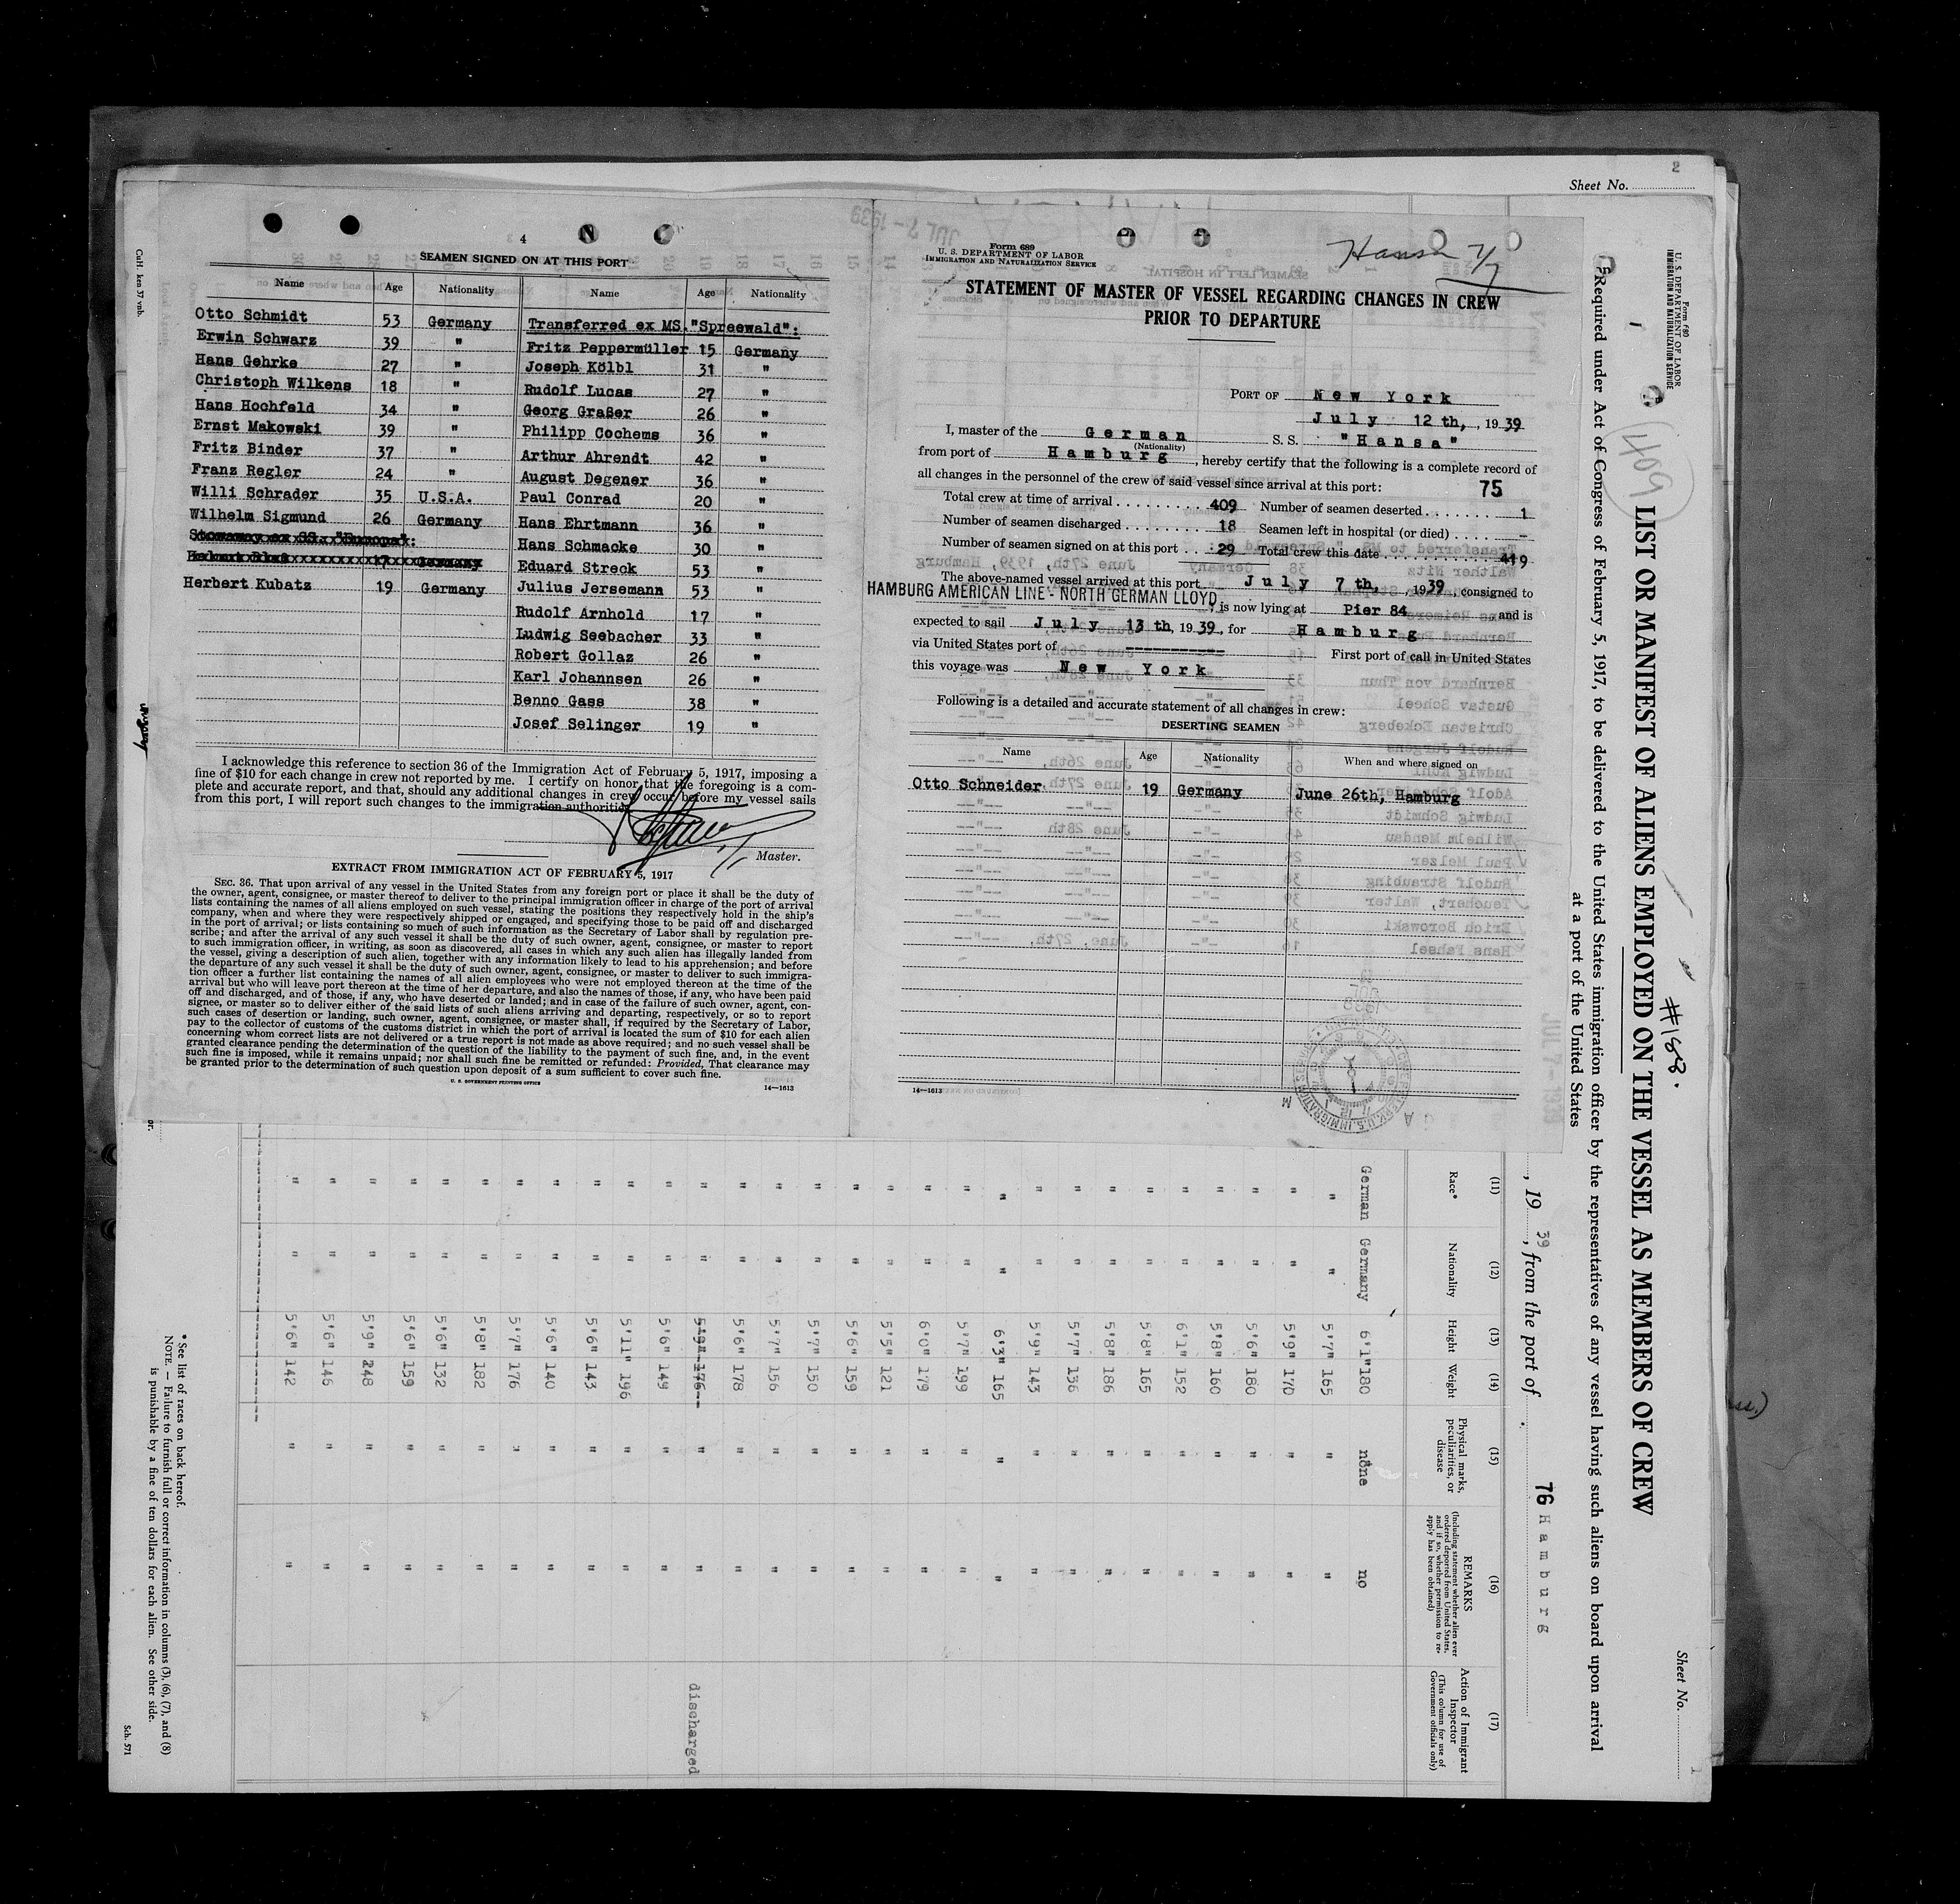 Sheet No. 2
4
SEAMEN SIGNED ON AT THIS PORT
Name Age Nationality Name Age Nationality
Otto Schmidt 53 Germany Transferred ex MS."Spreewald":
Erwin Schwarz 39 " Fritz Peppermüller 15 Germany
Hans Gehrke 27 " Joseph Kölbl 31 "
Christoph Wilkens 18 " Rudolf Lucas 27 "
Hans Hochfeld 34 " Georg Graßer 26 "
Ernst Makowski 39 " Philipp Cochems 36 "
Fritz Binder 37 " Arthur Ahrendt 42 "
Franz Regler 24 " August Degener 36 "
Willi Schrader 35 U.S.A. Paul Conrad 20 "
Wilhelm Sigmund 26 Germany Hans Ehrtmann 36 "
Stowaway ex SS. "Europa": Hans Schmacke 30 "
17 Germany Eduard Streck 53 "
Herbert Kubatz 19 Germany Julius Jersemann 53 "
Rudolf Arnhold 17 "
Ludwig Seebacher 33 "
Robert Gollaz 26 "
Karl Johannsen 26 "
Benno Gass 38 "
Josef Selinger 19 "
I acknowledge this reference to section 36 of the Immigration Act of February 5, 1917, imposing a
fine of $10 for each change in crew not reported by me. I certify on honor that the foregoing is a com-
plete and accurate report, and that, should any additional changes in crew occur before my vessel sails
from this port, I will report such changes to the immigration authorities.
Master.
EXTRACT FROM IMMIGRATION ACT OF FEBRUARY 5, 1917
SEC. 36. That upon arrival of any vessel in the United States from any foreign port or place it shall be the duty of
the owner, agent, consignee, or master thereof to deliver to the principal immigration officer in charge of the port of arrival
lists containing the names of all aliens employed on such vessel, stating the positions they respectively hold in the ship's
company, when and where they were respectively shipped or engaged, and specifying those to be paid off and discharged
in the port of arrival; or lists containing so much of such information as the Secretary of Labor shall by regulation pre-
scribe; and after the arrival of any such vessel it shall be the duty of such owner, agent, consignee, or master to report
to such immigration officer, in writing, as soon as discovered, all cases in which any such alien has illegally landed from
the vessel, giving a description of such alien, together with any information likely to lead to his apprehension; and before
the departure of any such vessel it shall be the duty of such owner, agent, consignee, or master to deliver to such immigra-
tion officer a further list containing the names of all alien employees who were not employed thereon at the time of the
arrival but who will leave port thereon at the time of her departure, and also the names of those, if any, who have been paid
off and discharged, and of those, if any, who have deserted or landed; and in case of the failure of such owner, agent, con-
signee, or master so to deliver either of the said lists of such aliens arriving and departing, respectively, or so to report
such cases of desertion or landing, such owner, agent, consignee, or master shall, if required by the Secretary of Labor,
pay to the collector of customs of the customs district in which the port of arrival is located the sum of $10 for each alien
concerning whom correct lists are not delivered or a true report is not made as above required; and no such vessel shall be
granted clearance pending the determination of the question of the liability to the payment of such fine, and, in the event
such fine is imposed, while it remains unpaid; nor shall such fine be remitted or refunded: Provided, That clearance may
be granted prior to the determination of such question upon deposit of a sum sufficient to cover such fine.
U. S. GOVERNMENT PRINTING OFFICE
14—1613
Form 689
U. S. DEPARTMENT OF LABOR
IMMIGRATION AND NATURALIZATION SERVICE
Hansa 7/7
STATEMENT OF MASTER OF VESSEL REGARDING CHANGES IN CREW
PRIOR TO DEPARTURE
PORT OF New York
July 12th, , 1939
I, master of the German S. S. "Hansa"
(Nationality)
from port of Hamburg, hereby certify that the following is a complete record of
all changes in the personnel of the crew of said vessel since arrival at this port: 75
Total crew at time of arrival 409 Number of seamen deserted 1
Number of seamen discharged 18 Seamen left in hospital (or died) -
Number of seamen signed on at this port 29 Total crew this date 419
The above-named vessel arrived at this port July 7th, , 1939, consigned to
HAMBURG AMERICAN LINE - NORTH GERMAN LLOYD, is now lying at Pier 84, and is
expected to sail July 13th, 1939, for Hamburg
via United States port of ----------- First port of call in United States
this voyage was New York
Following is a detailed and accurate statement of all changes in crew:
DESERTING SEAMEN
Name Age Nationality When and where signed on
Otto Schneider 19 Germany June 26th, Hamburg
14—1613
Form 680
U. S. DEPARTMENT OF LABOR
IMMIGRATION AND NATURALIZATION SERVICE
409
LIST OR MANIFEST OF ALIENS EMPLOYED ON THE VESSEL AS MEMBERS OF CREW
#188.
Required under Act of Congress of February 5, 1917, to be delivered to the United States immigration officer by the representatives of any vessel having such aliens on board upon arrival
at a port of the United States
Sheet No.
, 19 39, from the port of 76 Hamburg
(11) (12) (13) (14) (15) (16) (17)
Race* Nationality Height Weight Physical marks, peculiarities, or disease REMARKS (Including statement whether alien ever ordered deported from United States, and if so, whether permission to re-apply has been obtained) Action of Immigrant Inspector (This column for use of Government officials only)
German Germany 6'1" 180 none no
" " 5'7" 165 " "
" " 5'9" 170 " "
" " 5'6" 180 " "
" " 5'8" 160 " "
" " 6'1" 152 " "
" " 5'8" 165 " "
" " 5'8" 186 " "
" " 5'7" 136 " "
" " 5'9" 143 " "
" " 6'3" 165 " "
" " 5'7" 199 " "
" " 6'0" 179 " "
" " 5'5" 121 " "
" " 5'6" 159 " "
" " 5'7" 150 " "
" " 5'7" 156 " "
" " 5'6" 178 " "
" " 5'9" 176 " " discharged
" " 5'6" 149 " "
" " 5'11" 196 " "
" " 5'6" 143 " "
" " 5'6" 140 " "
" " 5'7" 176 " "
" " 5'8" 182 " "
" " 5'6" 132 " "
" " 5'6" 159 " "
" " 5'9" 248 " "
" " 5'6" 146 " "
" " 5'6" 142 " "
* See list of races on back hereof.
NOTE.—Failure to furnish full or correct information in columns (3), (6), (7), and (8)
is punishable by a fine of ten dollars for each alien. See other side.
Sch. 571